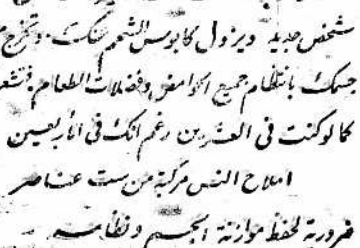 شخص جديد ويزول كابوس الشحم عنك. وتخرج م
جسمك بانتظام جميع الحوامض وفضلات الطعام. فتشعر
كما لو كنت في العشرين رغم انك في الأربعين
املاح النس مركبة من ست عناصر
ضرورية لحفظ موازنة الجسم ونظامه